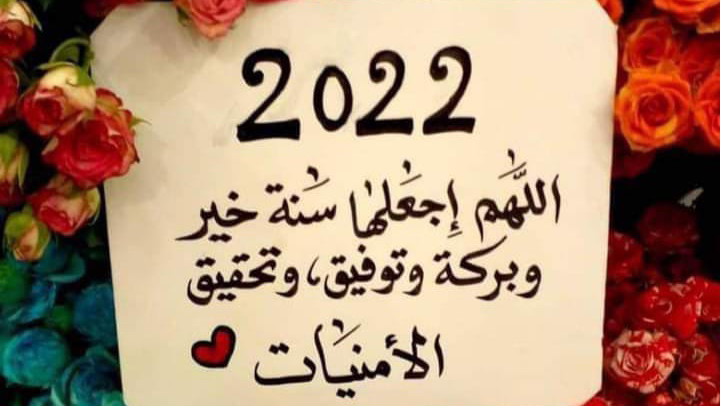 2022
اللَّهم إجعَلها سَنة خير
وبركة وتوفيق، وتحقيق
الأمنيَات